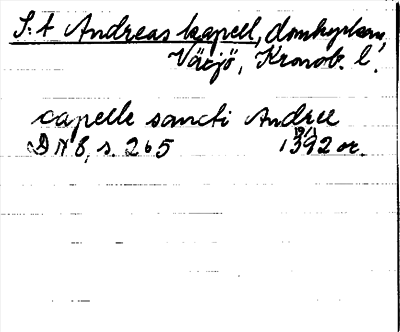 S:t Andreas kapell, domkyrkan,
Växjö, Kronob. l.
capelle sancti Andree
DN 8, s. 265 1392 or.